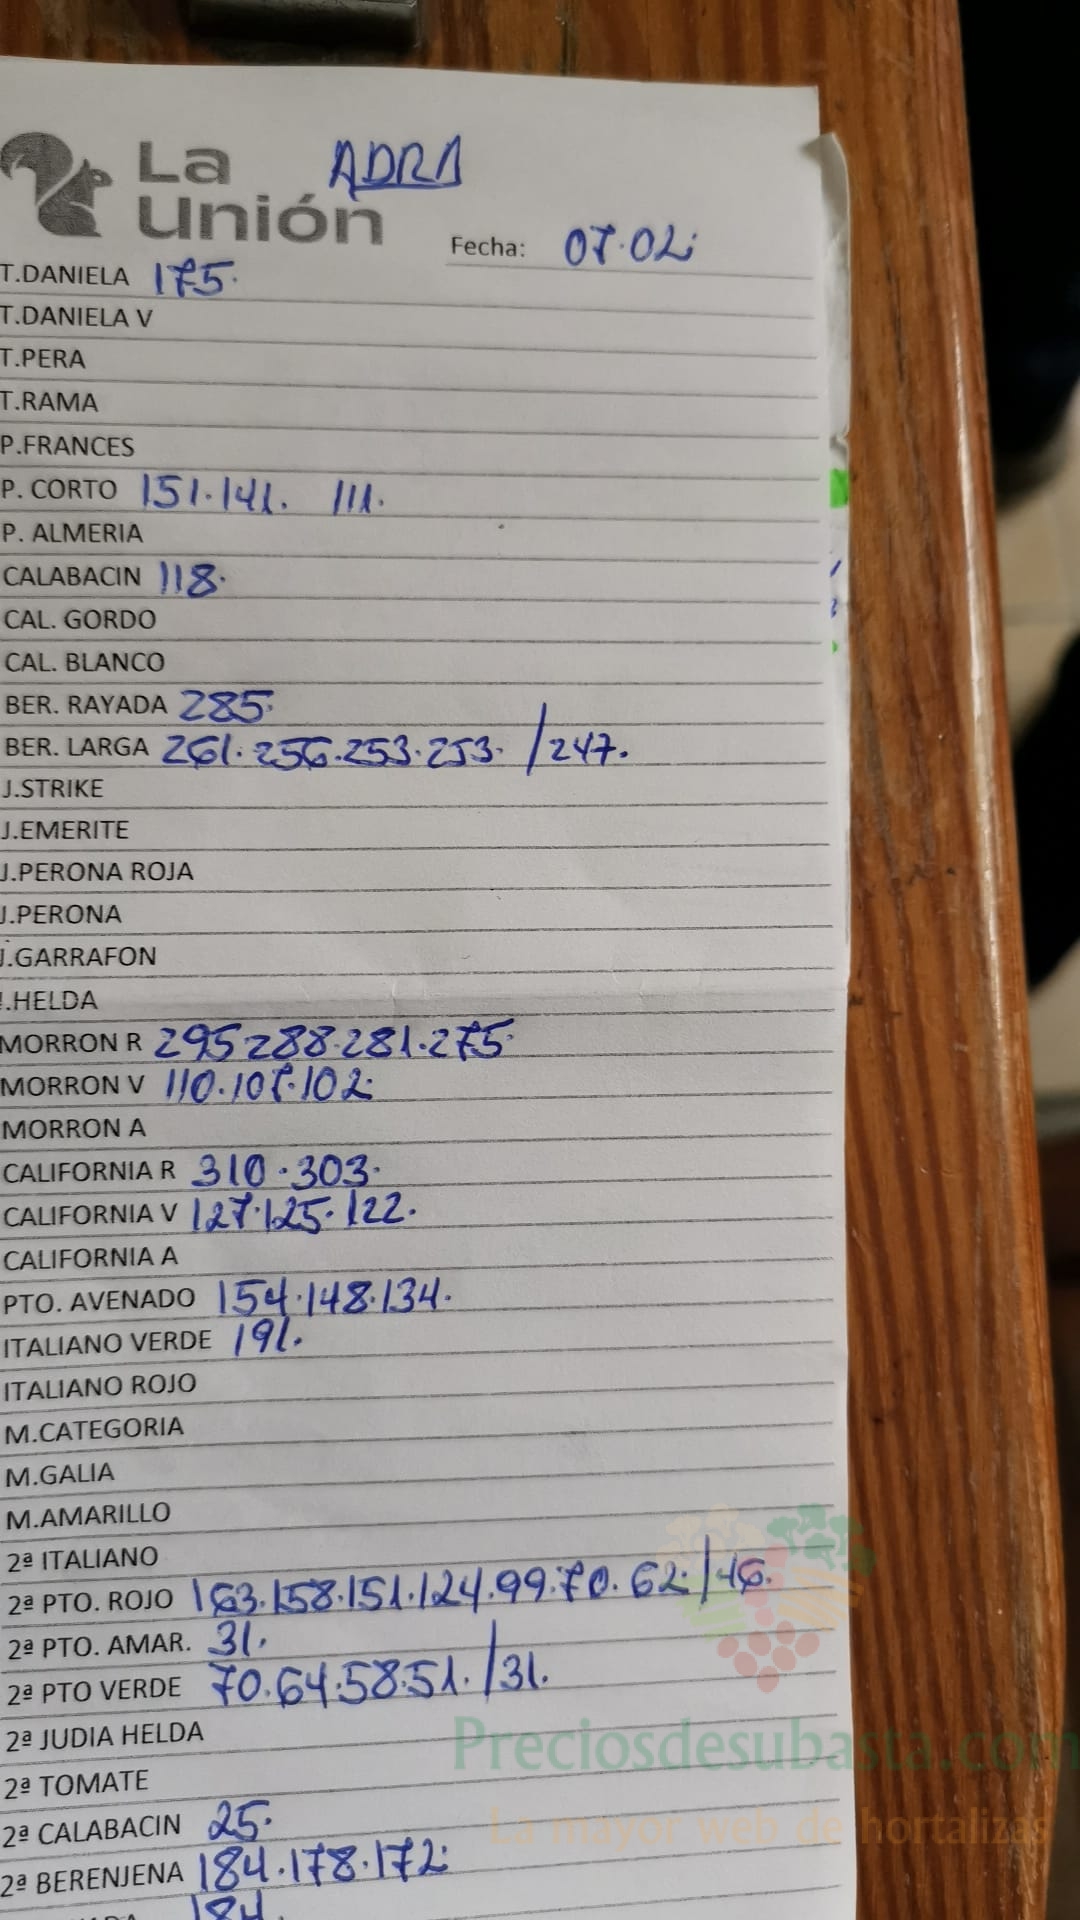 La
Unión
ADRA
Fecha: 07.02
T.DANIELA 175.
T.DANIELA V
T.PERA
T.RAMA
P.FRANCES
P. CORTO 151.141. 111.
P. ALMERIA
CALABACIN 118.
CAL. GORDO
CAL. BLANCO
BER. RAYADA 285.
BER. LARGA 261.256.253.253. /247.
J.STRIKE
J.EMERITE
J.PERONA ROJA
J.PERONA
J.GARRAFON
J.HELDA
MORRON R 295 288.281.275
MORRON V 110.107.102.
MORRON A
CALIFORNIA R 310.303.
CALIFORNIA V 127.125.122.
CALIFORNIA A
PTO. AVENADO 154.148.134.
ITALIANO VERDE 191.
ITALIANO ROJO
M.CATEGORIA
M.GALIA
M.AMARILLO
2ª ITALIANO
2ª PTO. ROJO 163.158.151.124.99.70.62./46.
2ª PTO. AMAR. 31.
2ª PTO VERDE 70.64.58.51./31.
2ª JUDIA HELDA
2ª TOMATE
2ª CALABACIN 25.
2ª BERENJENA 184.178.172.
184.
Preciosdesubasta.com
La mayor web de hortalizas